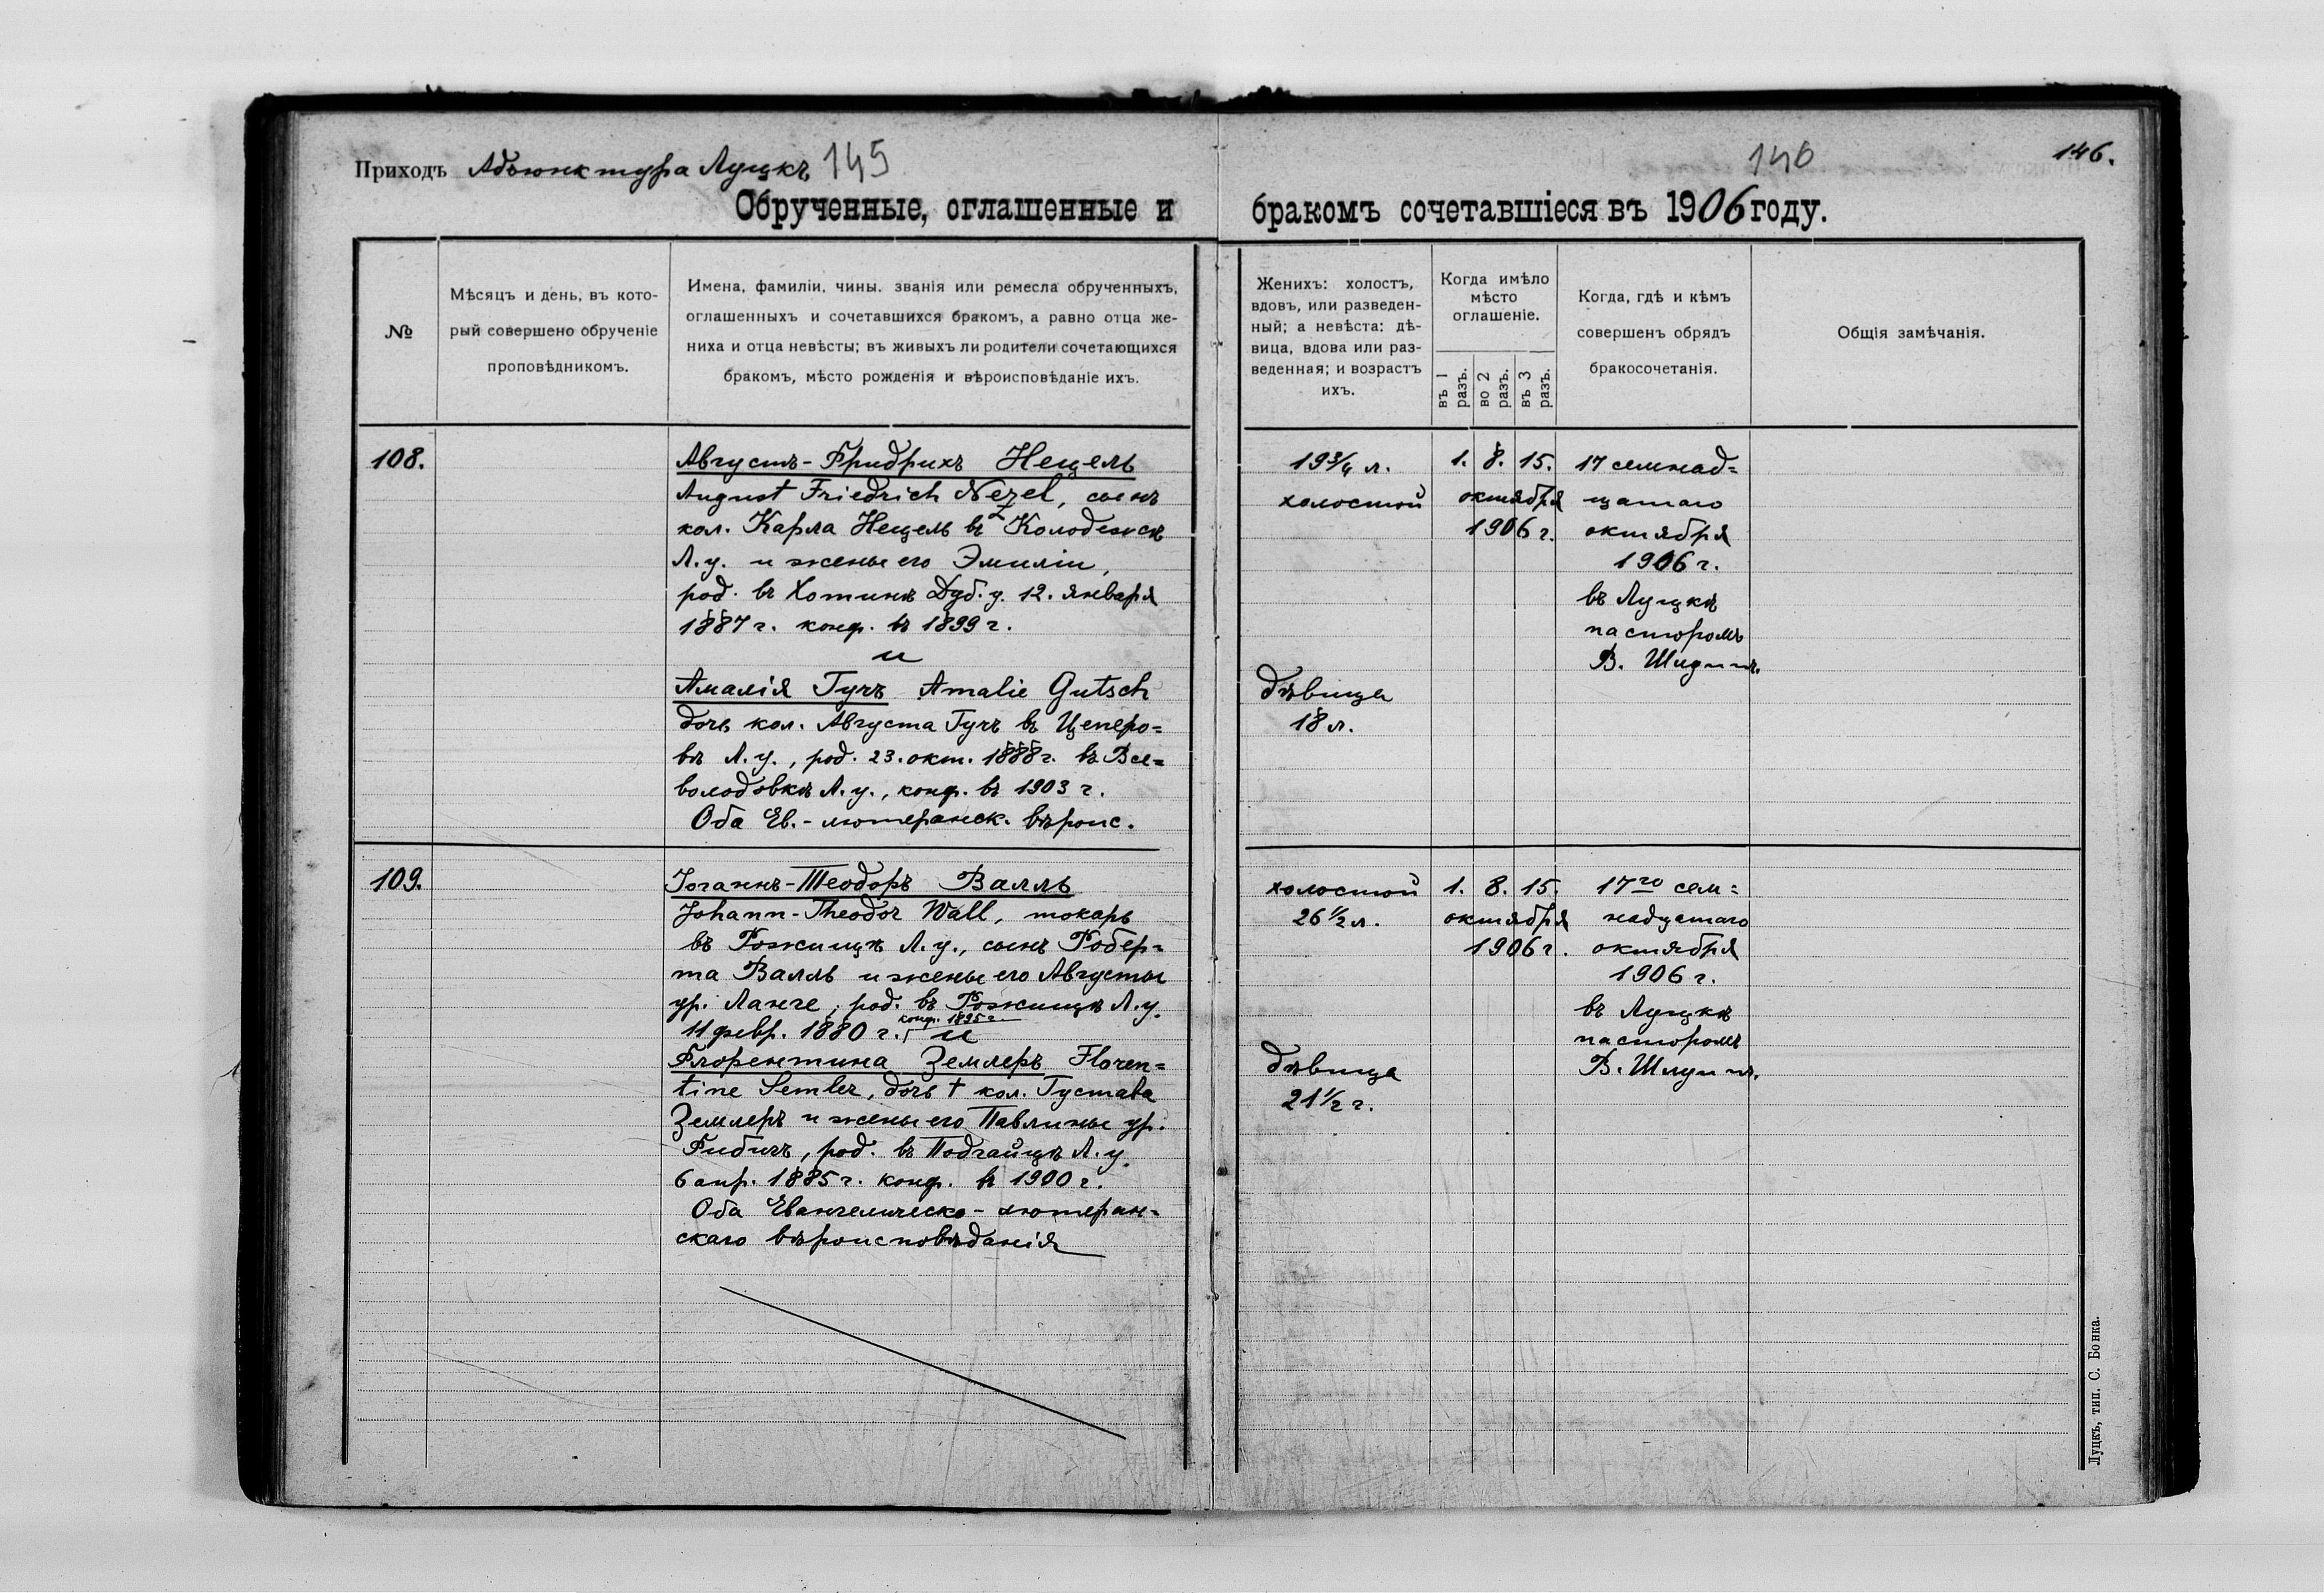 Приходъ Адъюнктура Луцкъ 145
Обрученные, оглашенные и
№
Мѣсяцъ и день, въ кото-
рый совершено обрученіе
проповѣдникомъ.
Имена, фамиліи, чины, званія или ремесла обрученныхъ,
оглашенныхъ и сочетавшихся бракомъ, а равно отца же-
ниха и отца невѣсты; въ живыхъ ли родители сочетающихся
бракомъ, мѣсто рожденія и вѣроисповѣданіе ихъ.
108.
Августъ-Фридрихъ Нецель
August Friedrich Nezel, сынъ
кол. Карла Нецель въ Колодежѣ
Л.у. и жены его Эмиліи,
род. въ Хотинѣ Дуб. у. 12. января
1887 г. конф. въ 1899 г.
и
Амалія Гучъ Amalie Gutsch
дочь кол. Августа Гучъ въ Цеперо-
вѣ Л.у., род. 23. окт. 1888 г. въ Все-
володовкѣ Л.у., конф. въ 1903 г.
Оба Ев.-лютеранск. вѣроис.
109.
Іоганнъ-Теодоръ Валль
Johann-Theodor Wall, токарь
въ Рожищѣ Л.у., сынъ Робер-
та Валль и жены его Августы
ур. Ланге, род. въ Рожищѣ Л.у.
конф. 1895 г.
11 февр. 1880 г. и
Флорентина Землеръ Floren-
tine Semler, дочь † кол. Густава
Землеръ и жены его Павлины ур.
Фибигъ, род. въ Подгайцѣ Л.у.
6 апр. 1885 г. конф. въ 1900 г.
Оба Евангелическо-лютеран-
скаго вѣроисповѣданія
146 146.
бракомъ сочетавшіеся въ 1906 году.
Женихъ: холостъ,
вдовъ, или разведен-
ный; а невѣста: дѣ-
вица, вдова или раз-
веденная; и возрастъ
ихъ.
Когда имѣло
мѣсто
оглашеніе.
въ 1 разъ.
во 2 разъ.
въ 3 разъ.
Когда, гдѣ и кѣмъ
совершенъ обрядъ
бракосочетанія.
Общія замѣчанія.
19 3/4 л.
холостой
дѣвица
18 л.
1. 8. 15.
октября
1906 г.
17 семнад-
цатаго
октября
1906 г.
въ Луцкѣ
пасторомъ
В. Шлуппъ.
холостой
26 1/2 л.
дѣвица
21 1/2 г.
1. 8. 15.
октября
1906 г.
17го сем-
надцатаго
октября
1906 г.
въ Луцкѣ
пасторомъ
В. Шлуппъ.
Луцкъ, тип. С. Бонка.